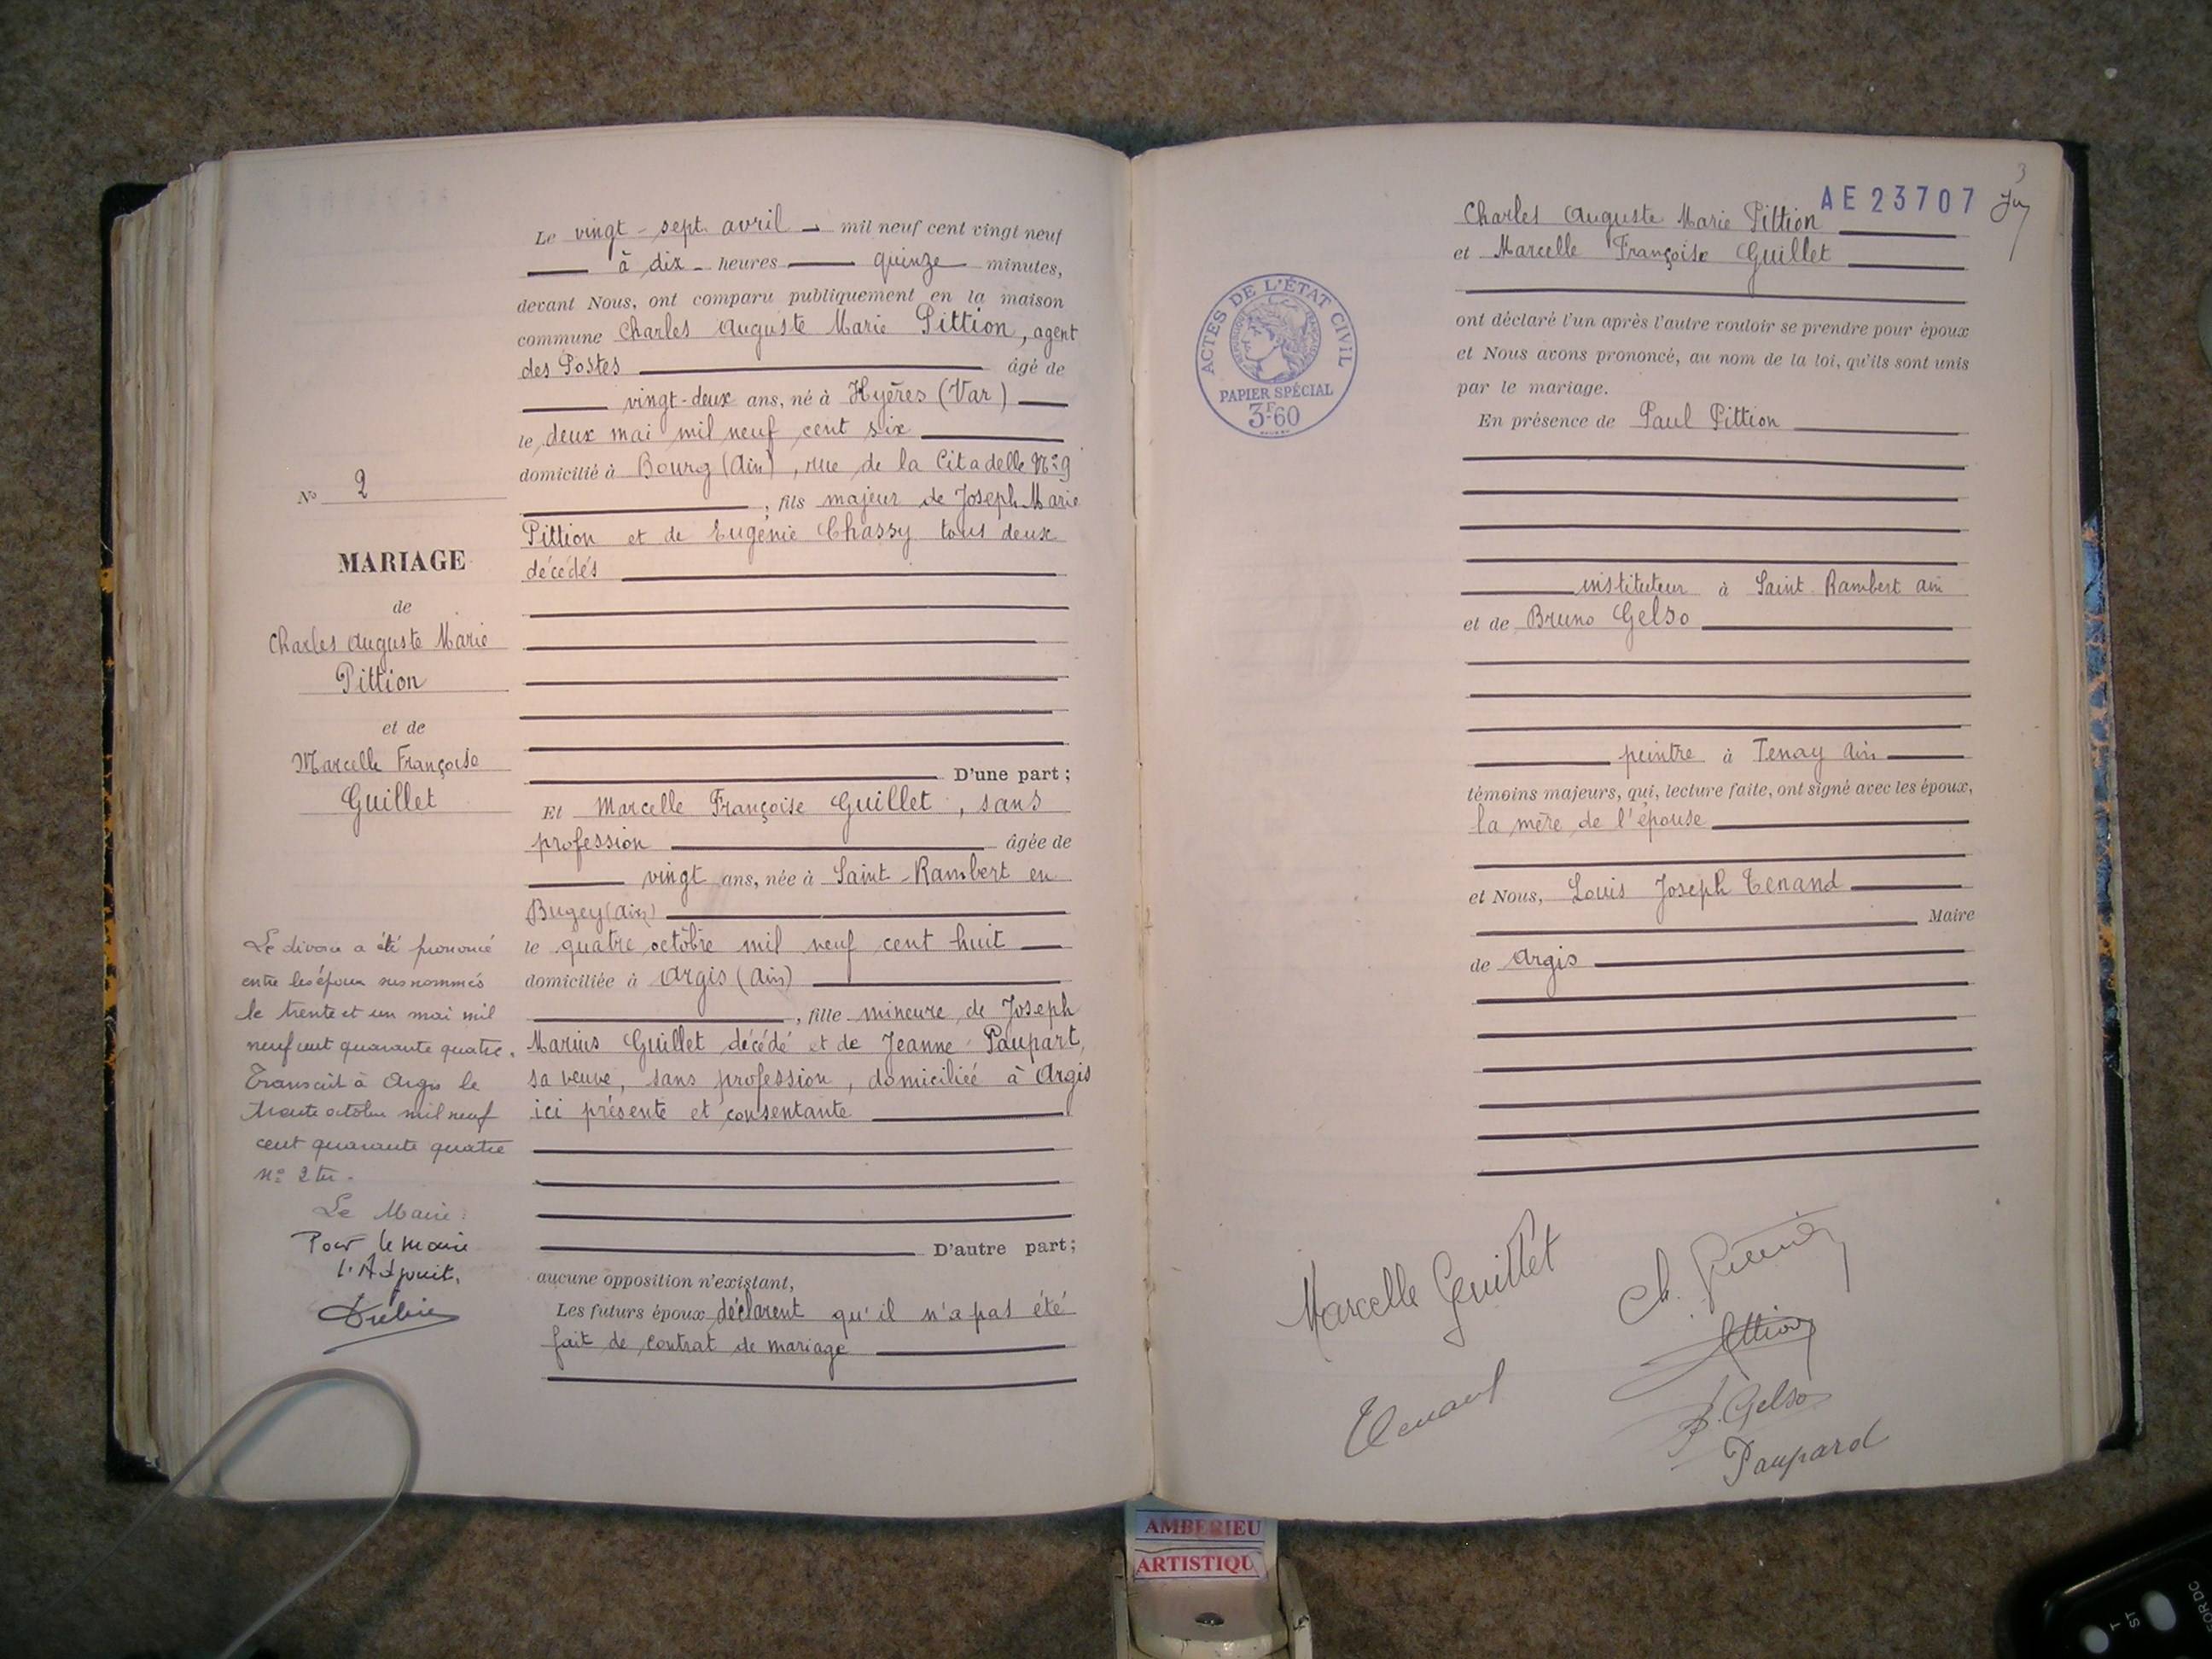 No 2
MARIAGE
de
Charles Auguste Marie
Pittion
et de
Marcelle Françoise
Guillet
Le divorce a été prononcé
entre les époux susnommés
le trente et un mai mil
neuf cent quarante quatre.
Transcrit à Argis le
trente octobre mil neuf
cent quarante quatre
n° 2 ter.
Le Maire :
Pour le maire
l'Adjoint,
Le vingt-sept avril mil neuf cent vingt neuf
à dix heures quinze minutes,
devant Nous, ont comparu publiquement en la maison
commune Charles Auguste Marie Pittion, agent
des Postes âgé de
vingt-deux ans, né à Hyères (Var)
le deux mai mil neuf cent six
domicilié à Bourg (Ain), rue de la Citadelle N° 9
, fils majeur de Joseph Marie
Pittion et de Eugénie Chassy tous deux
décédés
D'une part ;
Et Marcelle Françoise Guillet, sans
profession âgée de
vingt ans, née à Saint-Rambert en
Bugey (Ain)
le quatre octobre mil neuf cent huit
domiciliée à Argis (Ain)
, fille mineure de Joseph
Marius Guillet décédé et de Jeanne Paupart,
sa veuve, sans profession, domiciliée à Argis
ici présente et consentante
D'autre part ;
aucune opposition n'existant,
Les futurs époux déclarent qu'il n'a pas été
fait de contrat de mariage
3
AE 23707
ACTES DE L'ÉTAT CIVIL
RÉPUBLIQUE FRANÇAISE
PAPIER SPÉCIAL
3F-60
Charles Auguste Marie Pittion
et Marcelle Françoise Guillet
ont déclaré l'un après l'autre vouloir se prendre pour époux
et Nous avons prononcé, au nom de la loi, qu'ils sont unis
par le mariage.
En présence de Paul Pittion
instituteur à Saint-Rambert Ain
et de Bruno Gelso
peintre à Tenay Ain
témoins majeurs, qui, lecture faite, ont signé avec les époux,
la mère de l'épouse
et Nous, Louis Joseph Tenand
Maire
de Argis
Marcelle Guillet
Ch. Pittion
Pittion
Tenand
B. Gelso
Paupard
AMBERIEU
ARTISTIQU
T
ST